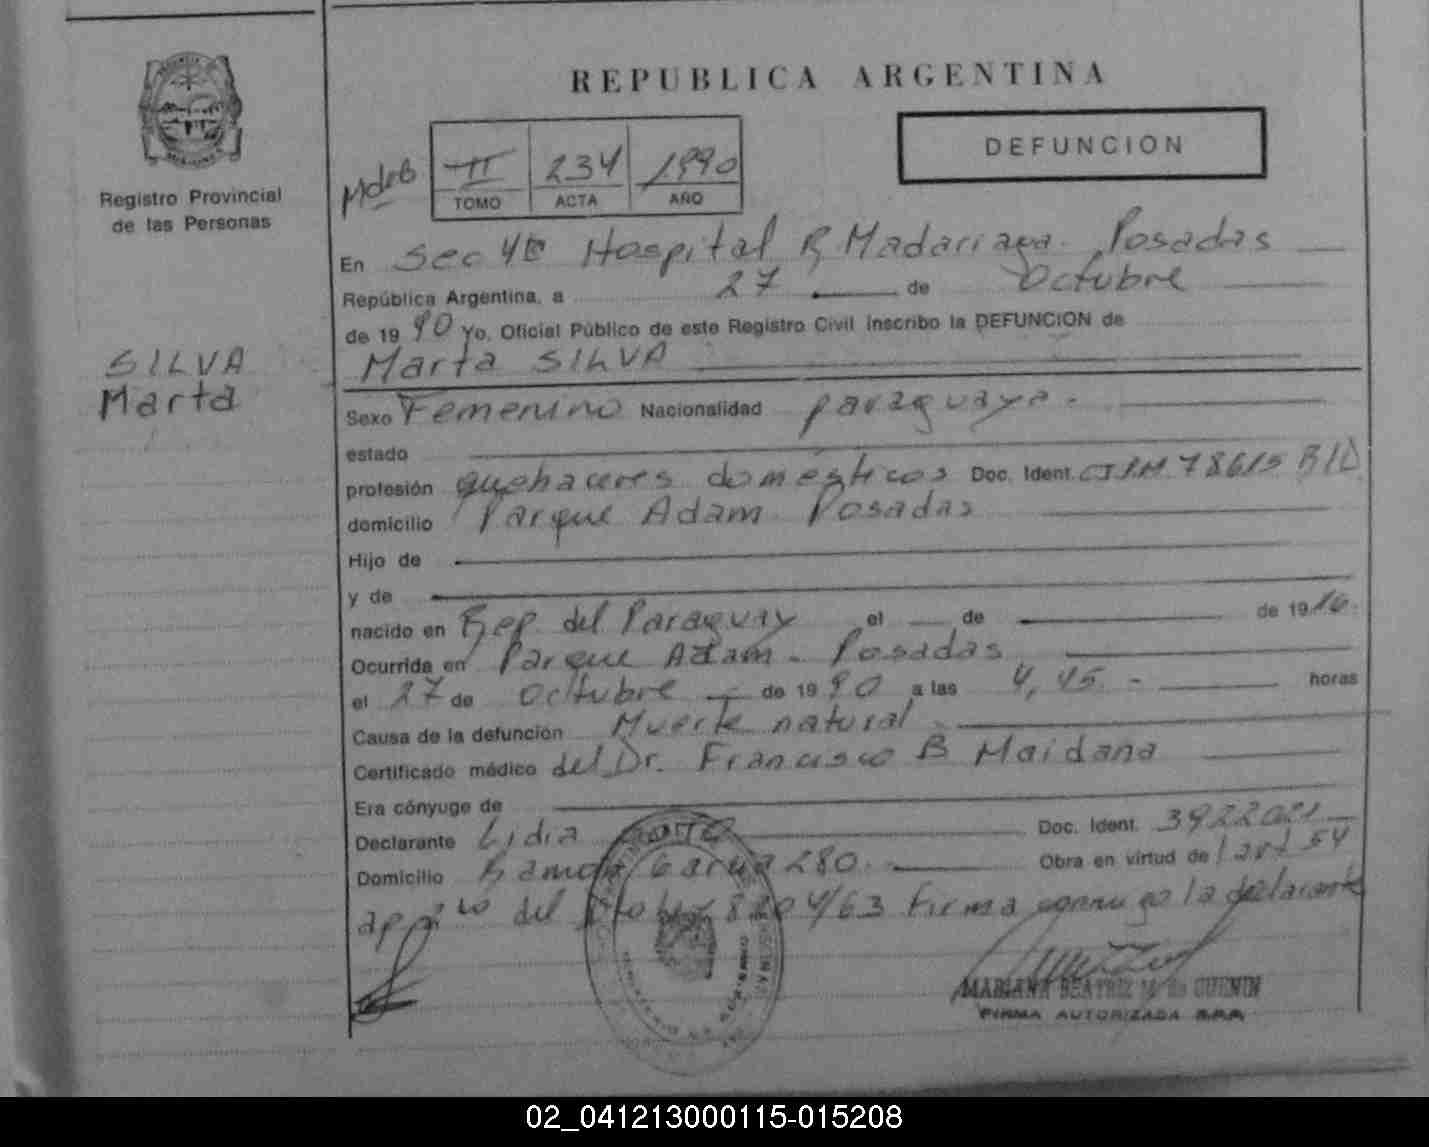 REPUBLICA ARGENTINA
DEFUNCION
Registro Provincial
de las Personas
II 234 1990
TOMO ACTA AÑO
En Sec 4ta Hospital R Madariaga. Posadas
República Argentina, a 27 de Octubre
de 1990 Yo, Oficial Público de este Registro Civil inscribo la DEFUNCION de
Marta SILVA
SILVA
Marta
Sexo Femenino Nacionalidad paraguaya.
estado
profesión quehaceres domésticos Doc. Ident. 78615
domicilio Parque Adam Posadas
Hijo de
y de
nacido en Rep. del Paraguay el de de 1916.
Ocurrida en Parque Adam - Posadas
el 27 de Octubre de 1990 a las 4,45 - horas
Causa de la defunción Muerte natural
Certificado médico del Dr. Francisco B Maidana
Era cónyuge de
Declarante Lidia Doc. Ident. 3922021
Domicilio Ramón Garcia 280. Obra en virtud de l art 54
ap 2do del 8204/63 firma conmigo la declarante
MARIANA BEATRIZ M. de GUENIN
FIRMA AUTORIZADA R.P.P.
02_041213000115-015208